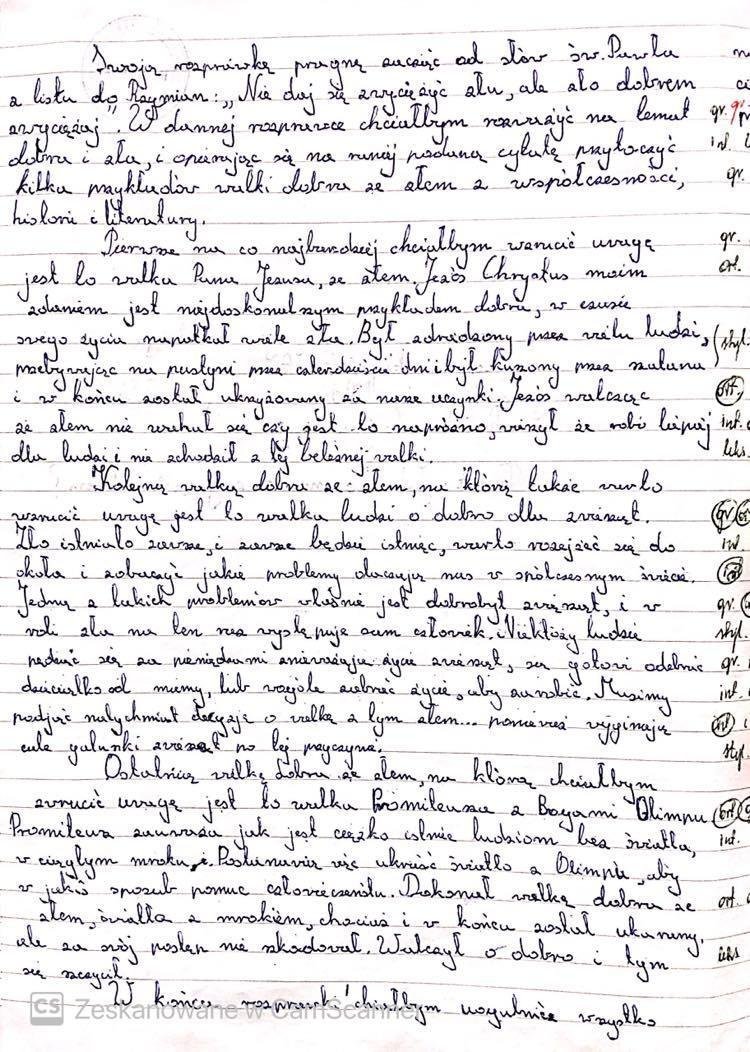 Swoją rozprawkę pragnę zacząć od słów św. Pawła
z listu do Rzymian: „Nie daj się zwyciężyć złu, ale zło dobrem
zwyciężaj". W dannej rozprawce chciałbym rozważyć na temat gr. gr.
dobra i zła, i opierając się na runiej podaną cytatę przytoczyć int.
kilka przykładów walki dobra ze złem z współczesności, gr.
historii i literatury.
Pierwsze na co najbardziej chciałbym zwrucić uvagę gr.
jest to walka Pana Jezusa, ze złem. Jezós Chrystus moim ort.
zdaniem jest najdoskonalszym przykładem dobra, w czasie
swego życia napotkał wiele zła. Był zdradzony przez wielu ludzi, styl.
przebywając na pustyni przez czterdzieści dni był kuszony przez szatana
i w końcu został ukrzyżowany za nasze uczynki. Jezós walcząc ort.
ze złem nie wahał się czy jest to napróżno, wierzył że robi liepiej int.
dla ludzi i nie zchodził z tej belesnej walki. leks.
Kolejną walką dobra ze złem, na którą także warto
wzrucić uwagę jest to walka ludzi o dobro dla zwierząt. gr
Zło istniało zawsze, i zawsze będzie istnieć, warto rozejrzeć się do int.
okoła i zobaczyć jakie problemy otaczają nas w spółczesnym świecie.
Jedną z takich problemów właśnie jest dobrobyt zwierząt, i w gr.
roli zła na ten raz występuje sam człowiek. Niektóży ludzie styl.
pędząc się za pieniędzami znieważają życie zwierząt, są gotowi odebrać gr.
dzieciątko od mamy, lub wogóle zabrać życie, aby zarobić. Musimy int.
podjąć natychmiast decyzję o walkę z tym złem... ponieważ wyginają int
całe gatunki zwierząt po tej przyczynie. styl.
Ostatnią walką dobra ze złem, na którą chciałbym
zwrucić uwagę jest to walka Promiteusza z Bogami Olimpu ort.
Promiteusz zauważa jak jest ciężko istnie ludziom bez światła, int.
w ciągłym mroku. Postanawia więc ukraść światło z Olimpu, aby
w jakiś sposub pomuc człowieczeństu. Dokonał walkę dobra ze ort.
złem, światła z mrokiem, chociaż i w końcu został ukarany,
ale za swój postęp nie szkodował. Walczył o dobro i tym leks
się szczycił.
W końcu rozprawki chciałbym uogulnić wszystko
CS Zeskanowane w CamScanner